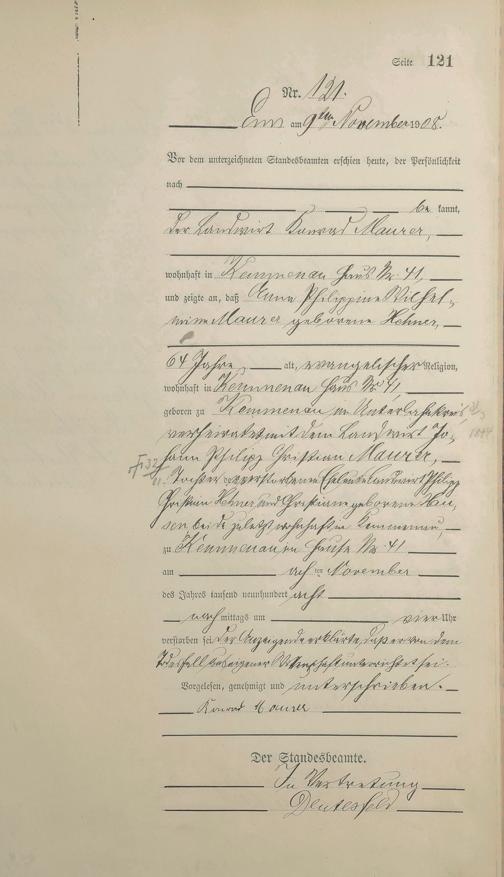 Seite 121
Nr. 121.
Ems am 9ten November 1908.
Vor dem unterzeichneten Standesbeamten erschien heute, der Persönlichkeit
nach
be kannt,
der Landwirt Konrad Maurer,
wohnhaft in Kemmenau Haus Nr. 41,
und zeigte an, daß Anna Philippine Wilhel-
mine Maurer geborene Hehner,
64 Jahre alt, evangelischer Religion,
wohnhaft in Kemmenau Haus Nr. 41
geboren zu Kemmenau im Unterlahnkreis,
verheiratet mit dem Landwirt Jo-
hann Philipp Christian Maurer,
Tochter der verstorbenen Eheleute Landwirt Philipp
Christian Hehner und Christiane geborene
beide zuletzt wohnhaft in Kemmenau,
zu Kemmenau im Hause Nr. 41
am achten November
des Jahres tausend neunhundert acht
nach mittags um vier Uhr
verstorben sei. Der Anzeigende erklärte, daß er von dem
Todesfall aus eigener Wissenschaft unterrichtet sei.
Vorgelesen, genehmigt und unterschrieben.
Konrad Maurer
Der Standesbeamte.
In Vertretung